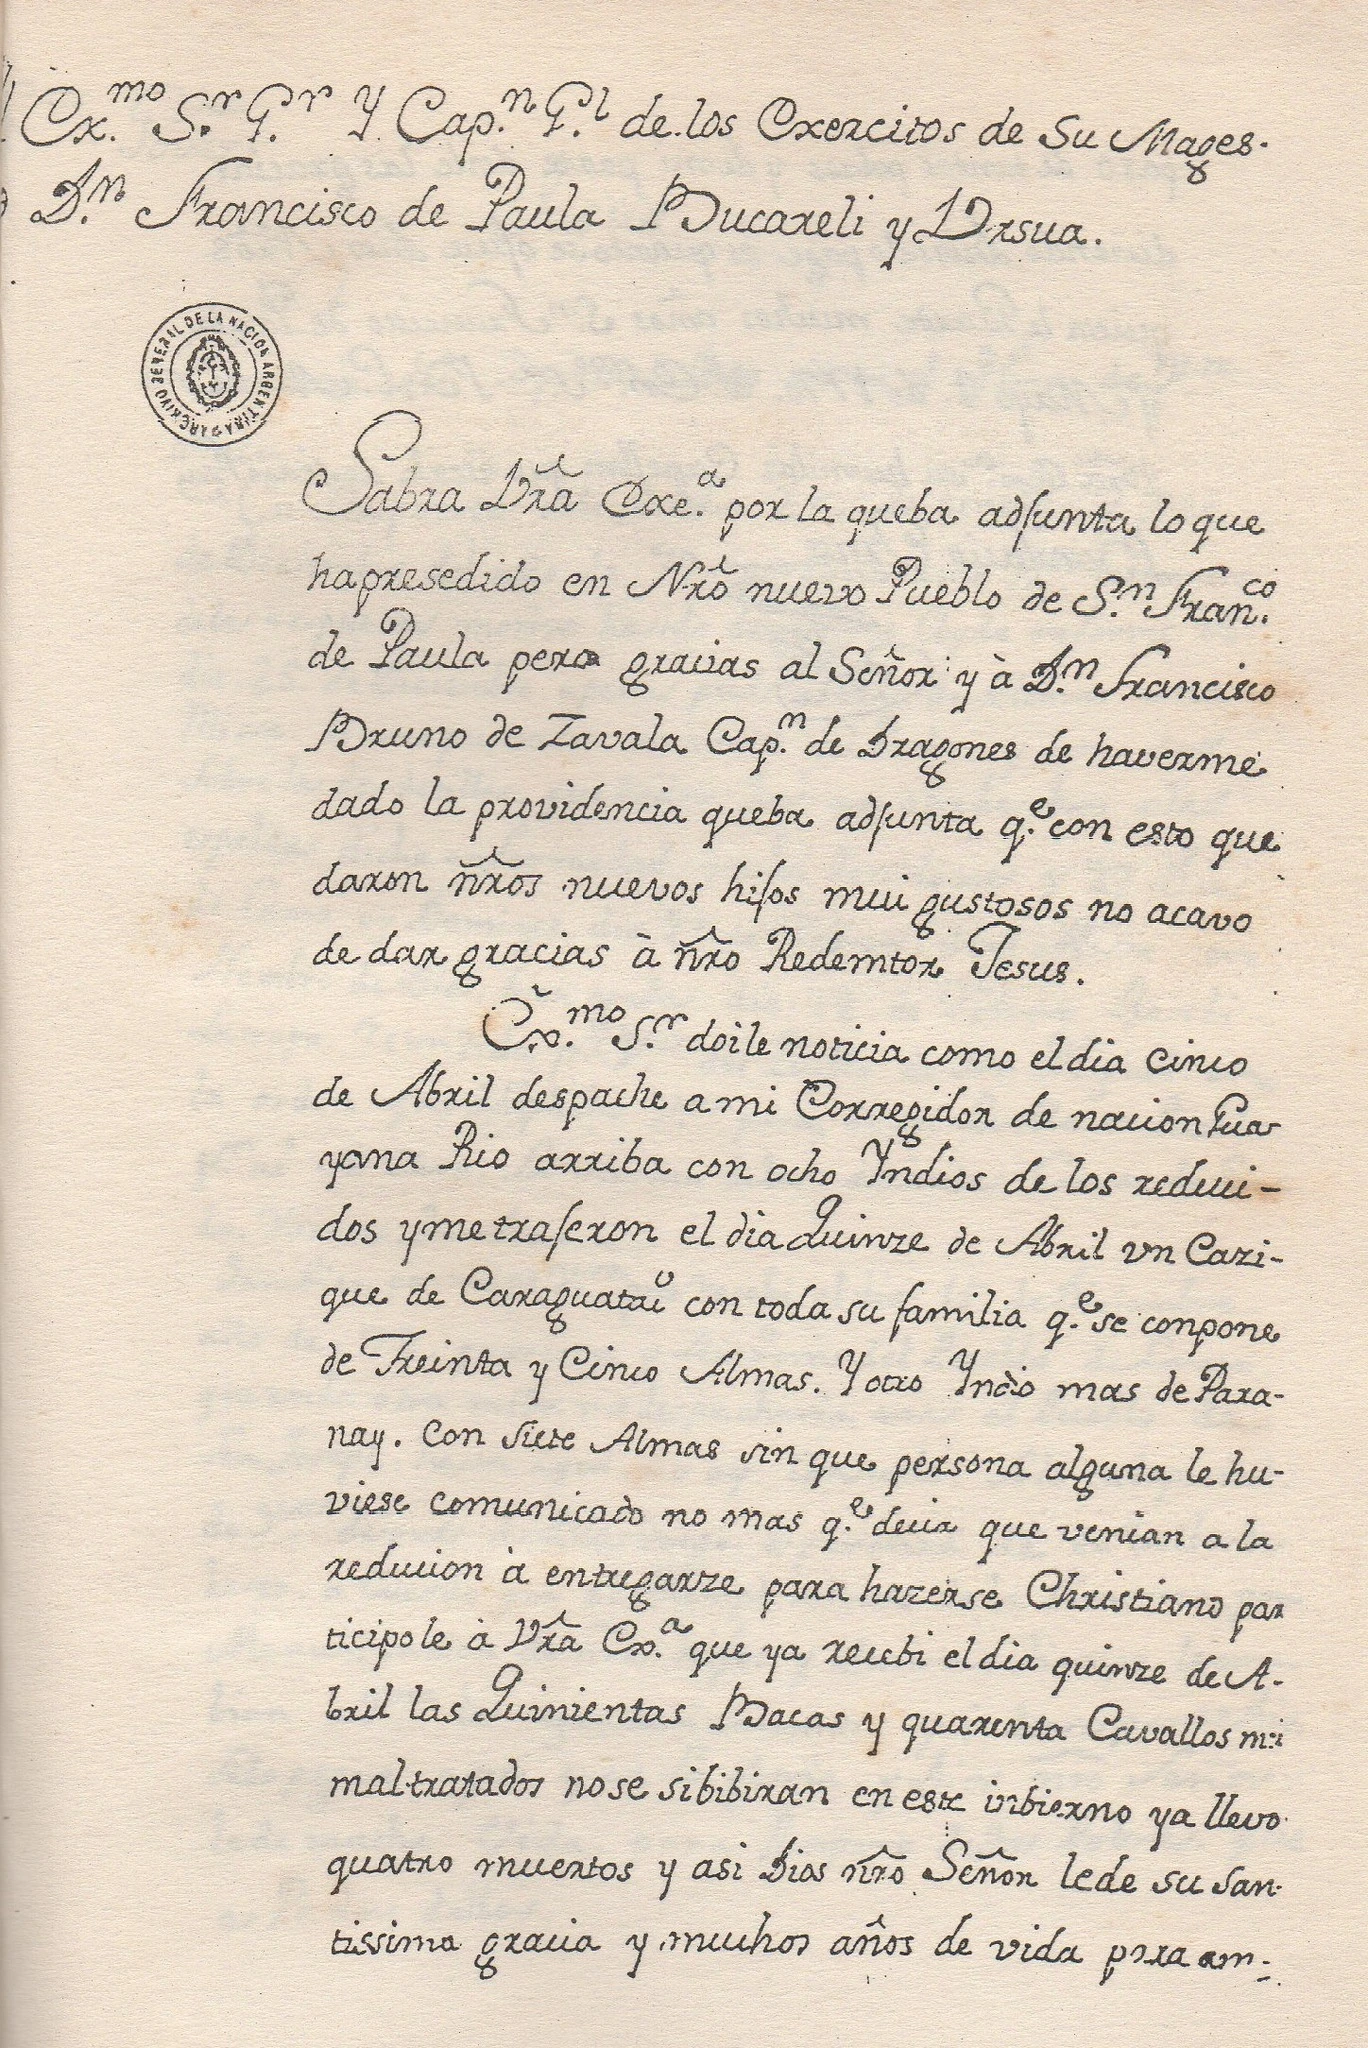 Ex.mo S.r G.r Y Cap.n G.l de los Exercitos de Su Mages.
D.n Francisco de Paula Bucareli y Vrsua.
ARCHIVO GENERAL DE LA NACION ARGENTINA
Sabra Vrã Exe.a por la queba adjunta lo que
hapresedido en Nrõ nuevo Pueblo de S.n Fran.co
de Paula pero gracias al Señor y à D.n Francisco
Bruno de Zavala Cap.n de Dragones de haverme
dado la providencia queba adjunta q.e con esto que
daron ñros nuevos hijos mui gustosos no acavo
de dar gracias à ñro Redemtor Jesus.
Ex.mo S.r doile noticia como el dia cinco
de Abril despache a mi Corregidor de nacion Gua-
yana Rio arriba con ocho Yndios de los reduci-
dos y me trajeron el dia Quinze de Abril vn Cazi-
que de Caraguataỉ con toda su familia q.e se conpone
de Treinta y Cinco Almas. Y otro Yndio mas de Para-
nay. con siete Almas sin que persona alguna le hu-
viese comunicado no mas q.e decir que venian a la
reducion à entregarze para hazerse Christiano par
ticipole à Vrã Ex.a que ya recebi el dia quinze de A-
bril las Quinientas Bacas y quarenta Cavallos mui
maltratados no se sibibiran en este inbierno ya llevo
quatro muertos y asi Dios ñro Señor le de su san-
tissima gracia y muchos años de vida para am-